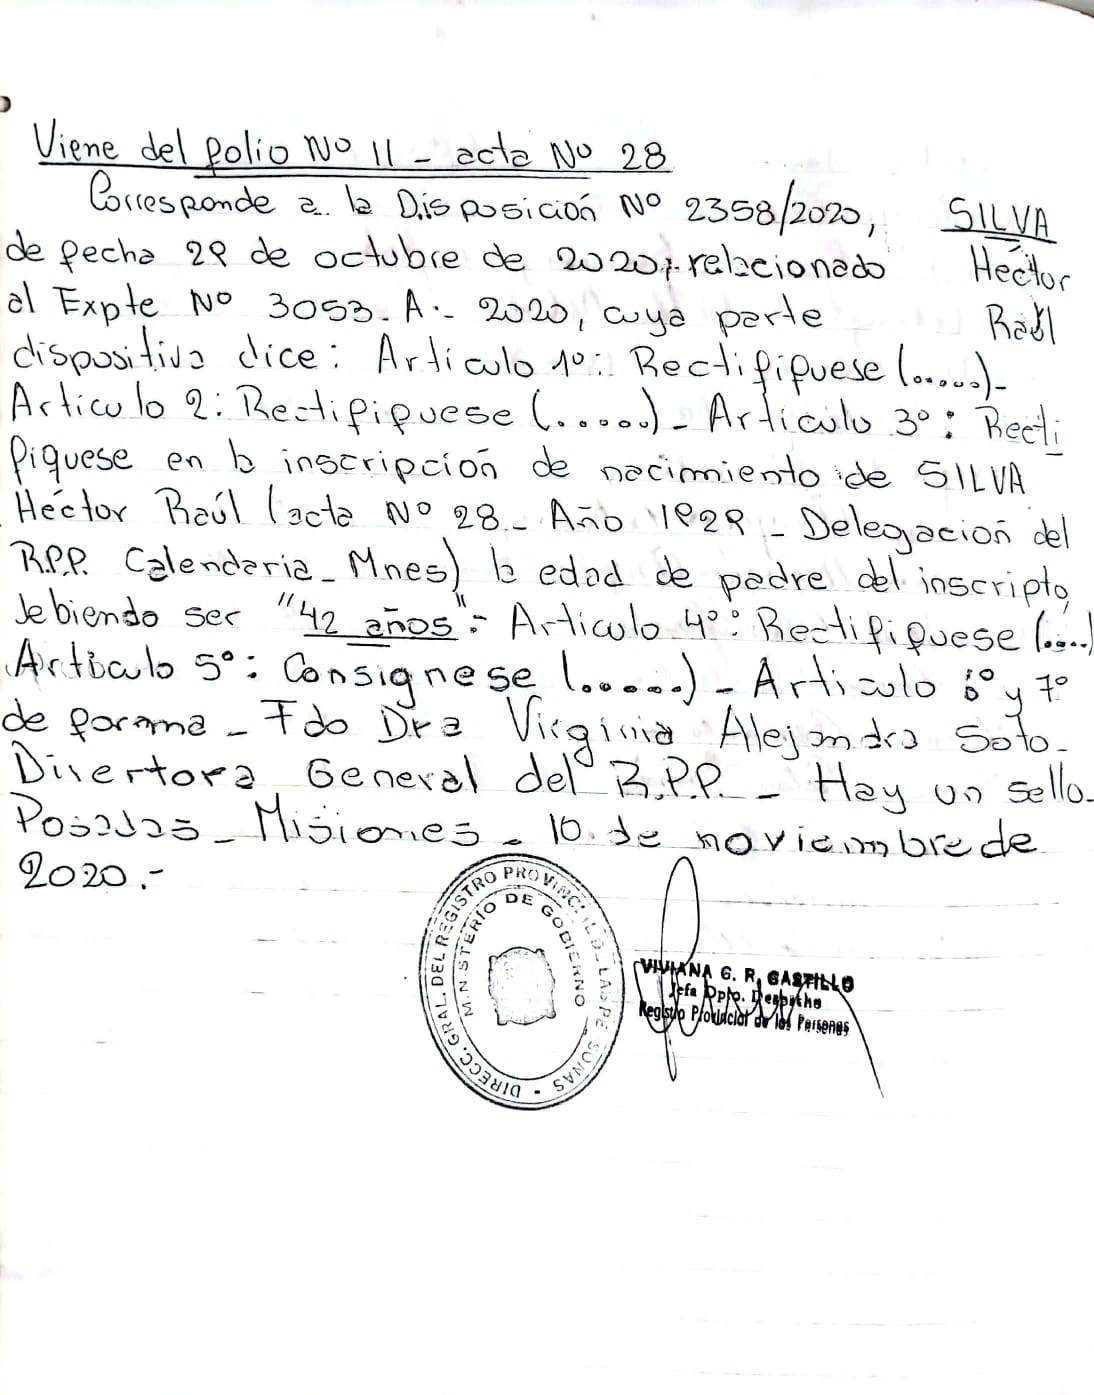 Viene del folio Nº 11 - acta Nº 28
Corresponde a la Disposición Nº 2358/2020,
de fecha 29 de octubre de 2020; relacionado
al Expte Nº 3053. A.- 2020, cuya parte
dispositiva dice: Artículo 1º: Rectifíquese (......)-
Artículo 2: Rectifíquese (......) - Artículo 3º: Recti
fíquese en la inscripción de nacimiento de SILVA
Héctor Raúl (acta Nº 28 - Año 1929 - Delegación del
R.P.P. Calendaria - Mnes) la edad de padre del inscripto,
debiendo ser "42 años".- Artículo 4º: Rectifíquese (....)
Artículo 5º: Consígnese (......) - Artículo 6º y 7º
de forma - Fdo Dra Virginia Alejandra Soto -
Directora General del R.P.P. - Hay un sello.
Posadas - Misiones - 10 de noviembre de
2020.-
SILVA
Héctor
Raúl
DIRECC. GRAL. DEL REGISTRO PROVINCIAL DE LAS PERSONAS
MINISTERIO DE GOBIERNO
VIVIANA G. R. CASTILLO
Jefa Dpto. Despacho
Registro Provincial de las Personas